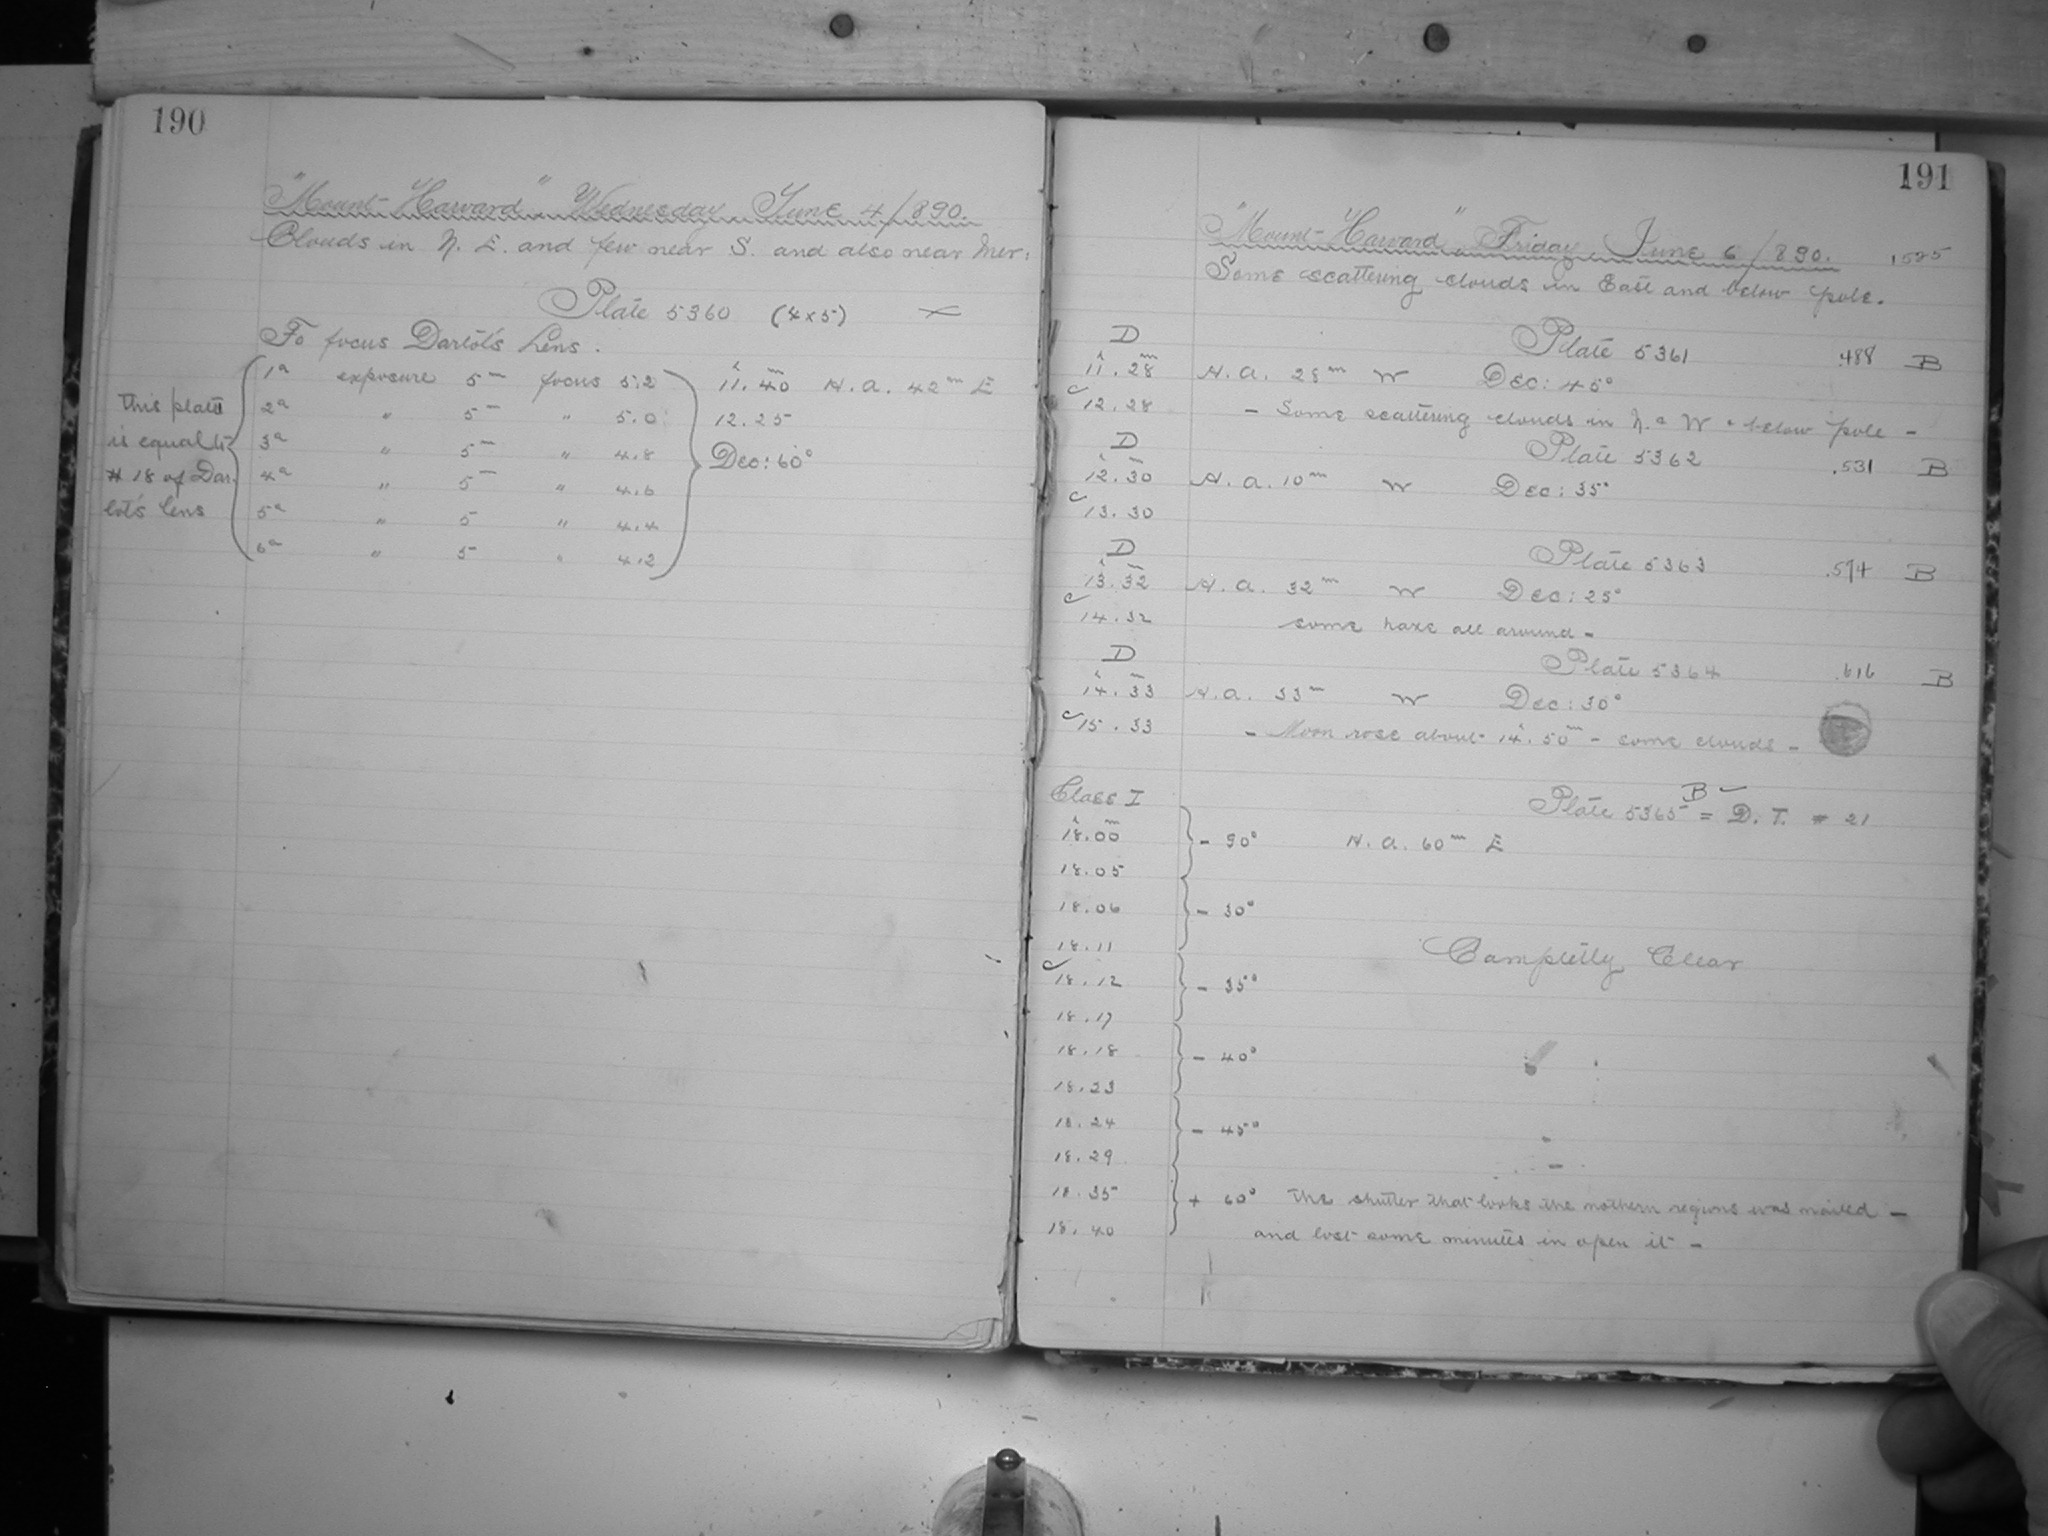 190
"Mount-Harvard", Wednesday, June 4/890.
Clouds in N. E. and few near S. and also near Mer:
Plate 5360 (4x5) ×
To focus Darlot's Lens.
1a exposure 5m focus 5.2 11h.40m H.A. 42m E
2a " 5m " 5.0 12.25
3a " 5m " 4.8 Dec: 60°
4a " 5m " 4.6
5a " 5 " 4.4
6a " 5 " 4.2
This plate
is equal to
# 18 of Dar-
lot's lens
191
"Mount-Harvard", Friday, June 6/890. 1585
Some scattering clouds in East and below pole.
D Plate 5361 .488 B
11h.28m H.A. 28m W Dec: 45°
12.28 - Some scattering clouds in N. & W & below pole -
D Plate 5362 .531 B
12h.30m H.A. 10m W Dec: 35°
13.30
D Plate 5363 .574 B
13h.32m H.A. 32m W Dec: 25°
14.32 some haxe all around -
D Plate 5364 .616 B
14h.33m H.A. 33m W Dec: 30°
15.33 - Moon rose about 14h.50m - some clouds -
Class I Plate 5365 = D. T. # 21
B
18h.00m - 90° H.A. 60m E
18.05
18.06 - 30°
18.11 Campletly Clear
18.12 - 35°
18.17
18.18 - 40°
18.23
18.24 - 45°
18.29
18.35 + 60° The shutter that looks the nothern regions was nailed -
18.40 and lost some minutes in open it -